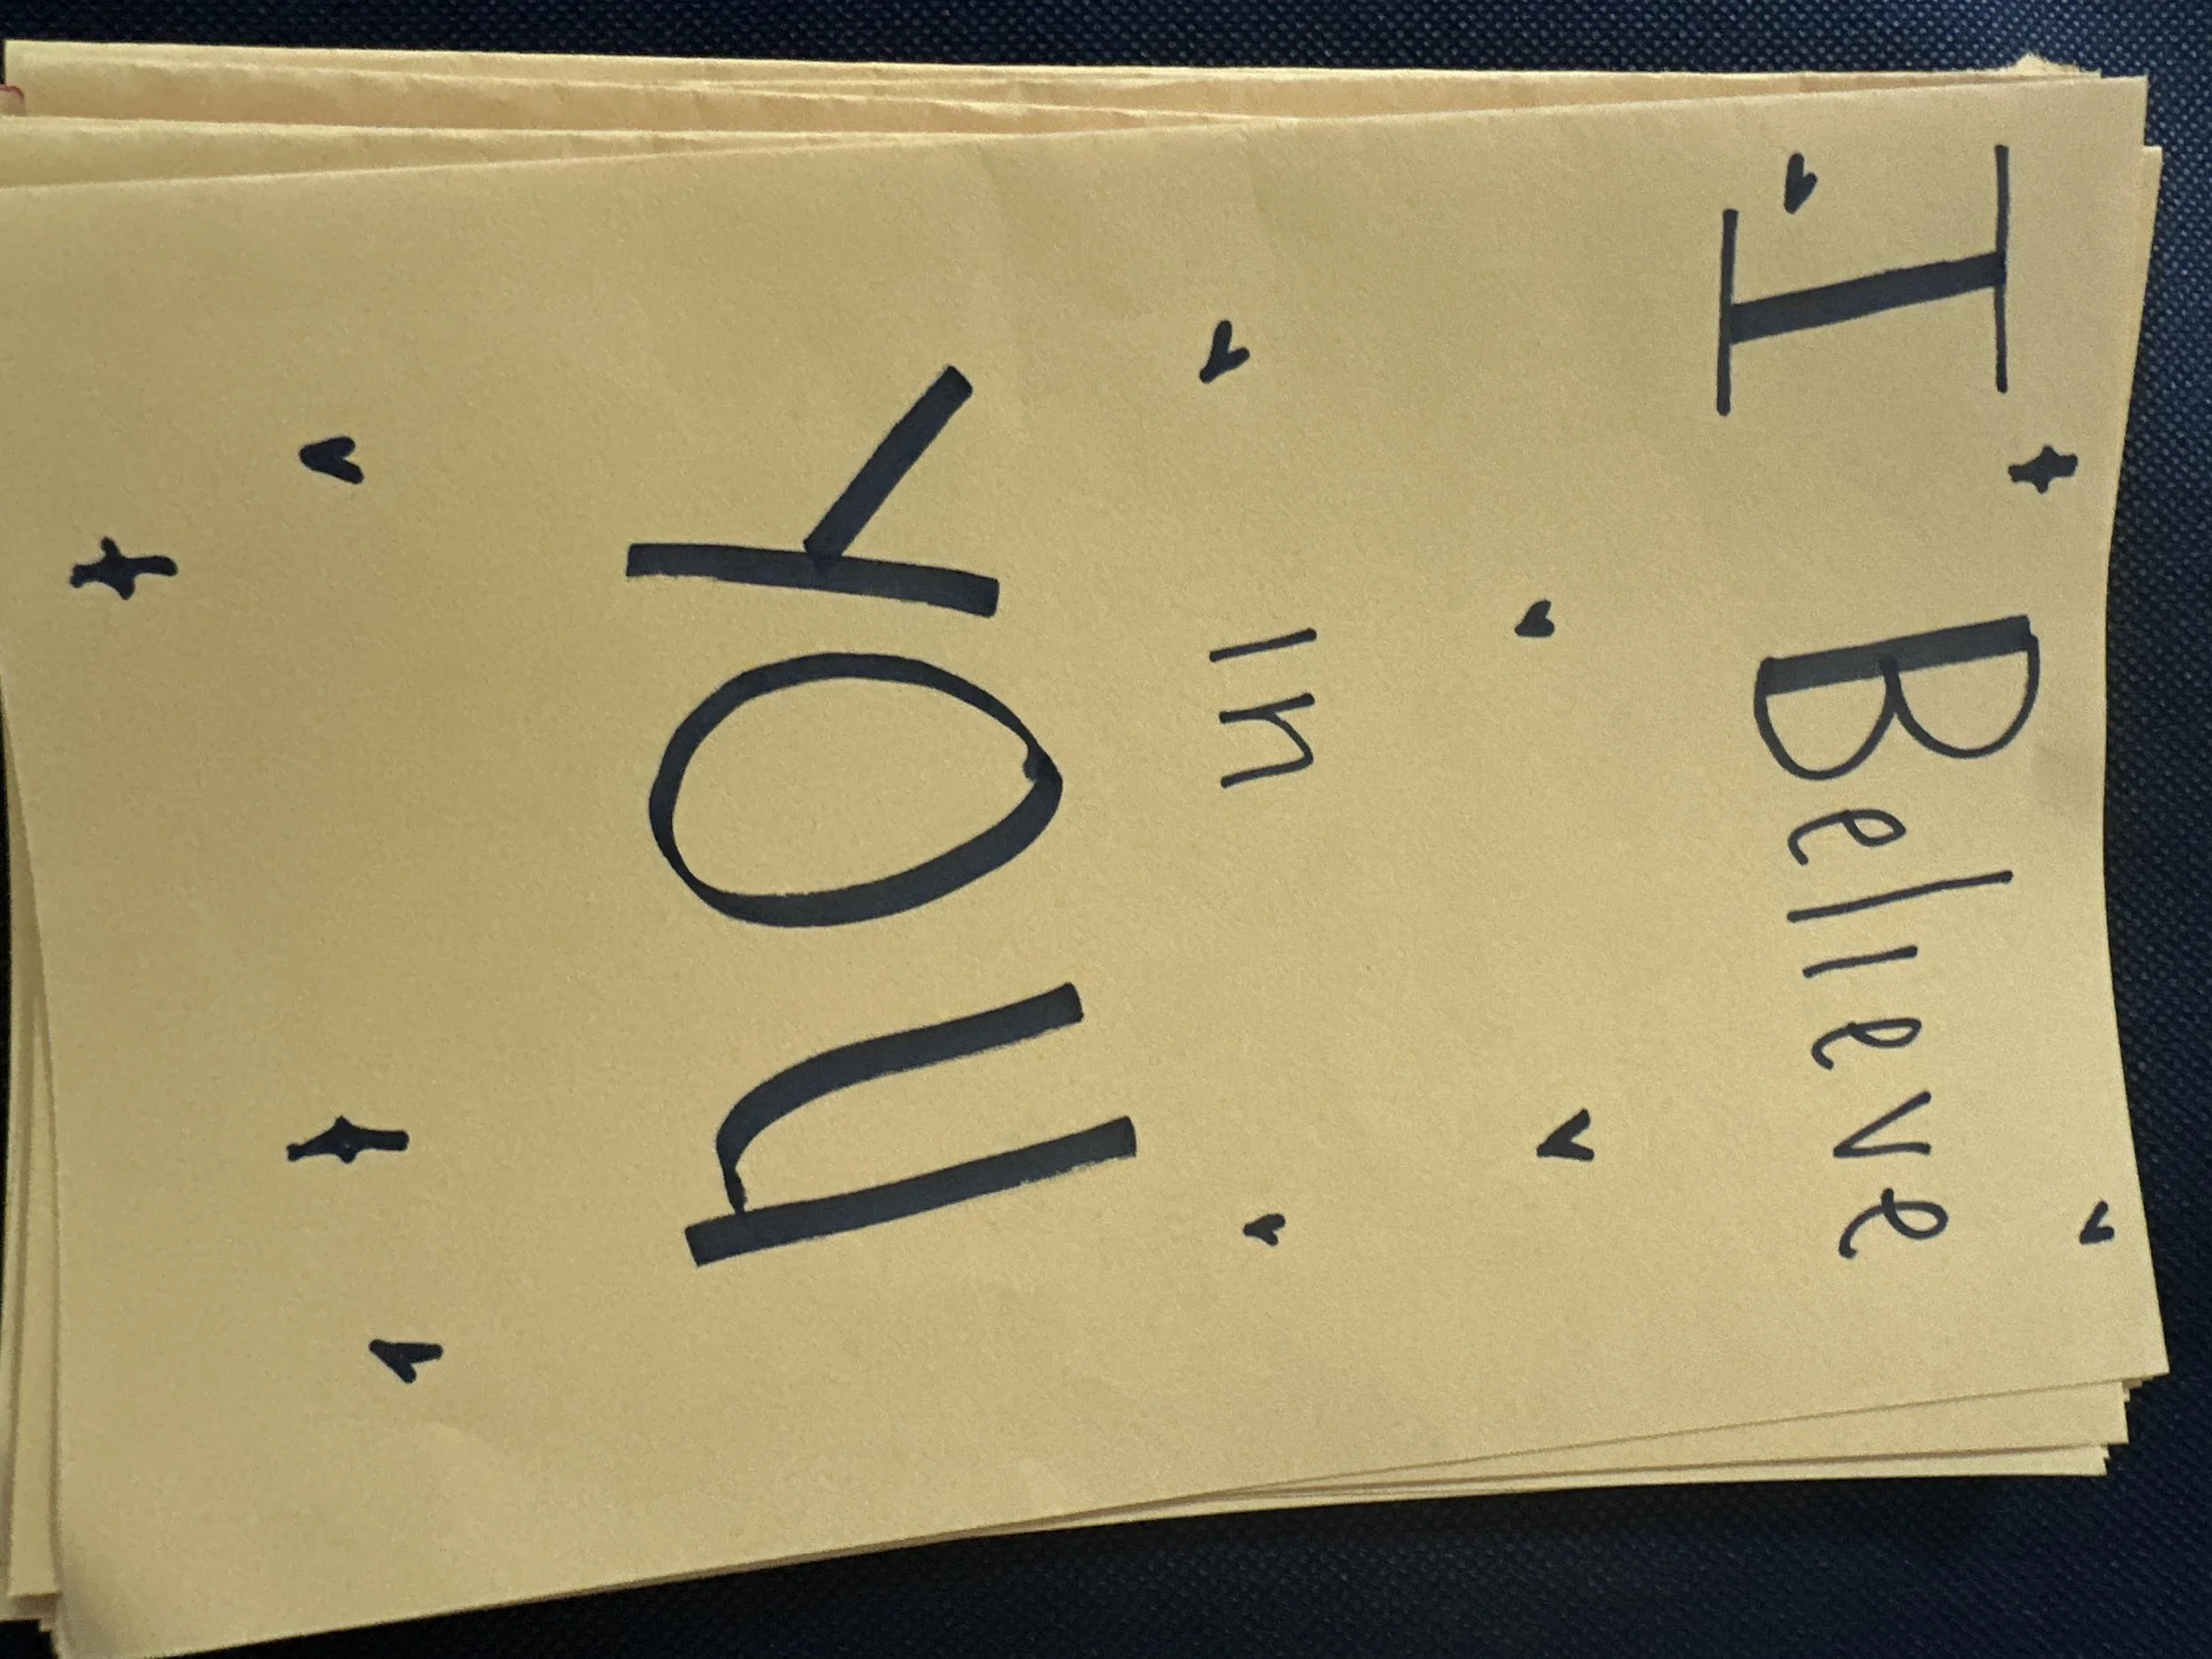 I Believe
in
YOU